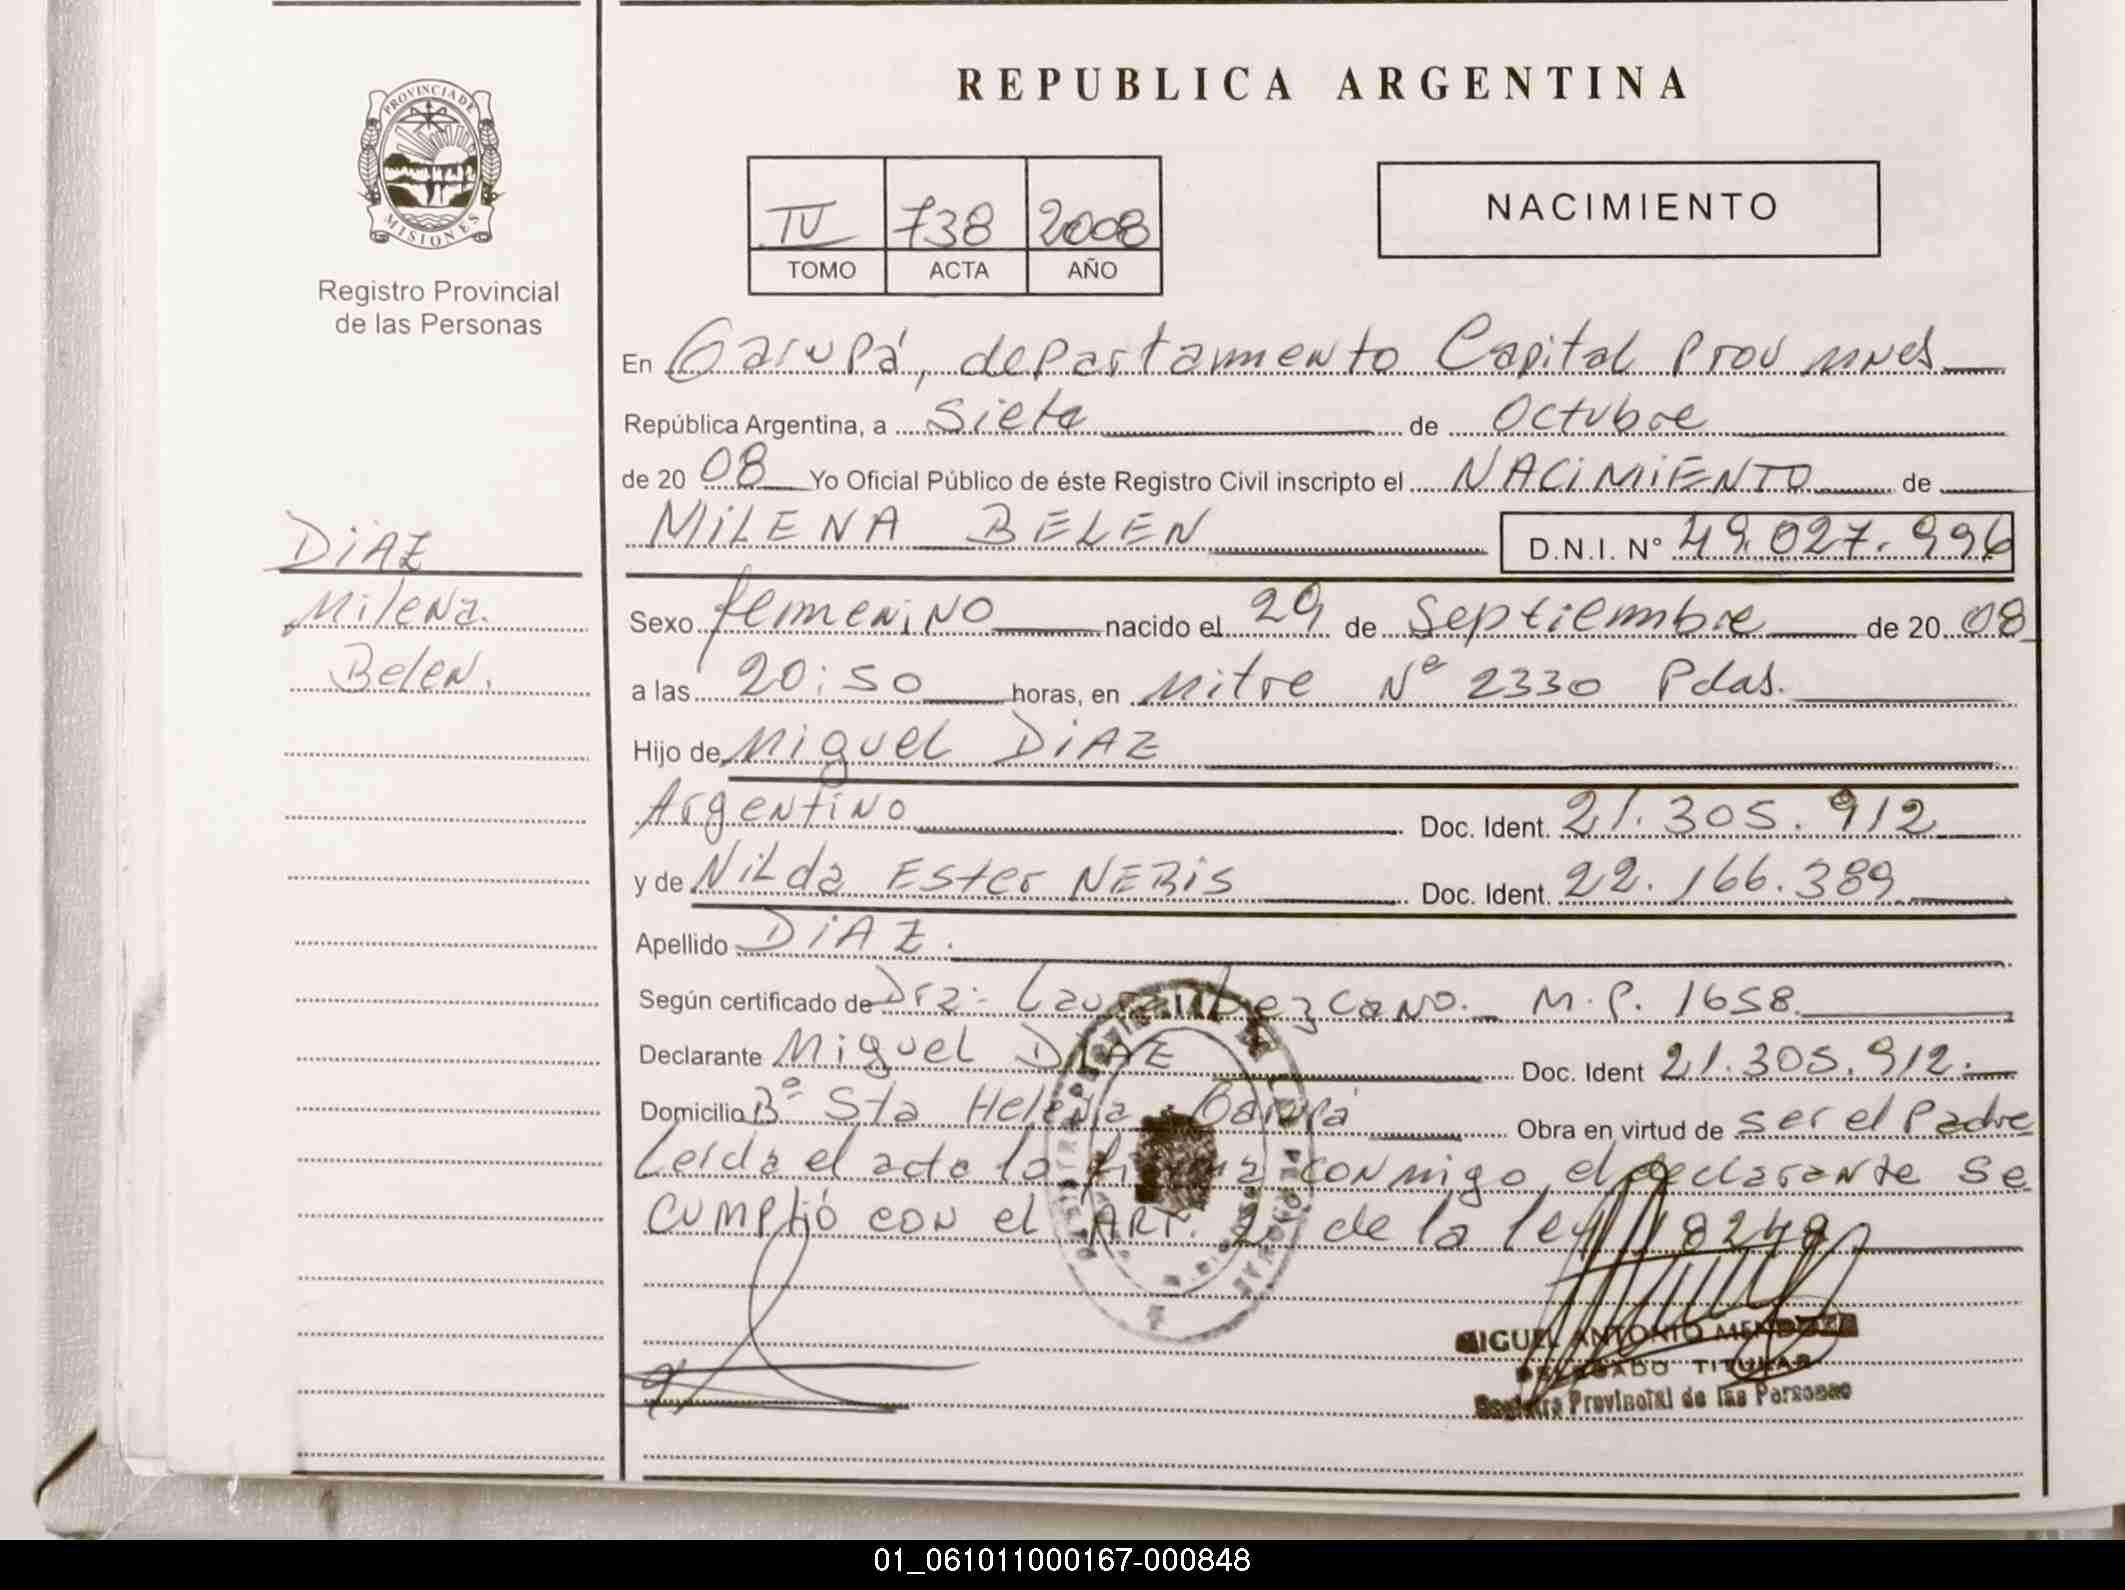 PROVINCIA DE
MISIONES
Registro Provincial
de las Personas
DIAZ
Milena.
Belen.
REPUBLICA ARGENTINA
IV 738 2008
TOMO ACTA AÑO
NACIMIENTO
En Garupá, departamento Capital Prov mnes
República Argentina, a Siete de Octubre
de 2008 Yo Oficial Público de éste Registro Civil inscripto el NACIMIENTO de
MILENA BELEN D.N.I. N° 49.027.996
Sexo femenino nacido el 29 de Septiembre de 2008
a las 20:50 horas, en Mitre Nº 2330 Pdas.
Hijo de Miguel DIAZ
Argentino Doc. Ident. 21.305.912
y de Nilda Ester NERIS Doc. Ident. 22.166.389
Apellido DIAZ.
Según certificado de Dra:- Laura Lezcano. M.P. 1658
Declarante Miguel DIAZ Doc. Ident 21.305.912.
Domicilio Bº Sta Helena - Garupá Obra en virtud de ser el Padre
Leida el acta la firma conmigo el declarante se
cumplió con el ART. 2 de la ley 18248
MIGUEL ANTONIO MENDOZA
DELEGADO TITULAR
Registro Provincial de las Personas
01_061011000167-000848